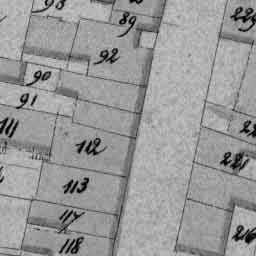 93
89
92
90
91
111
112
113
117
118
221
216